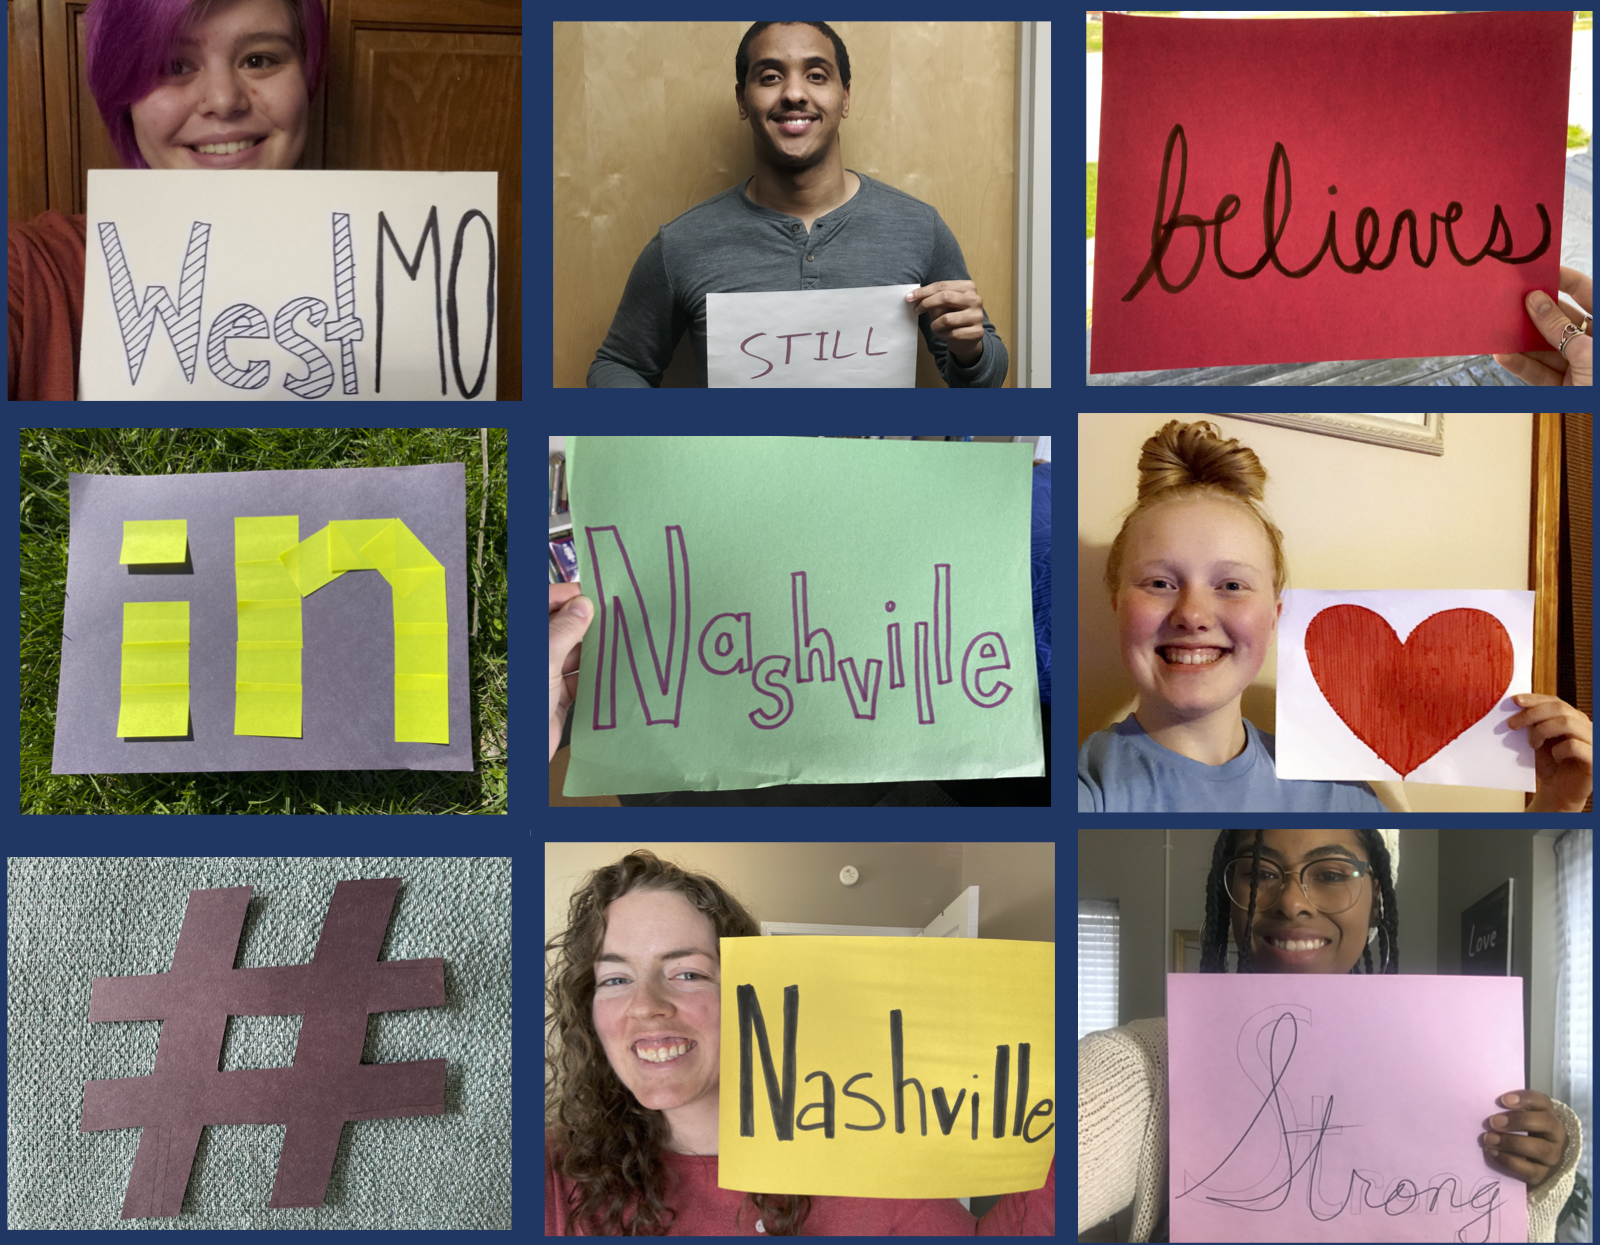 WestMO
STILL
believes
in
Nashville
#
Nashville
Love
Strong